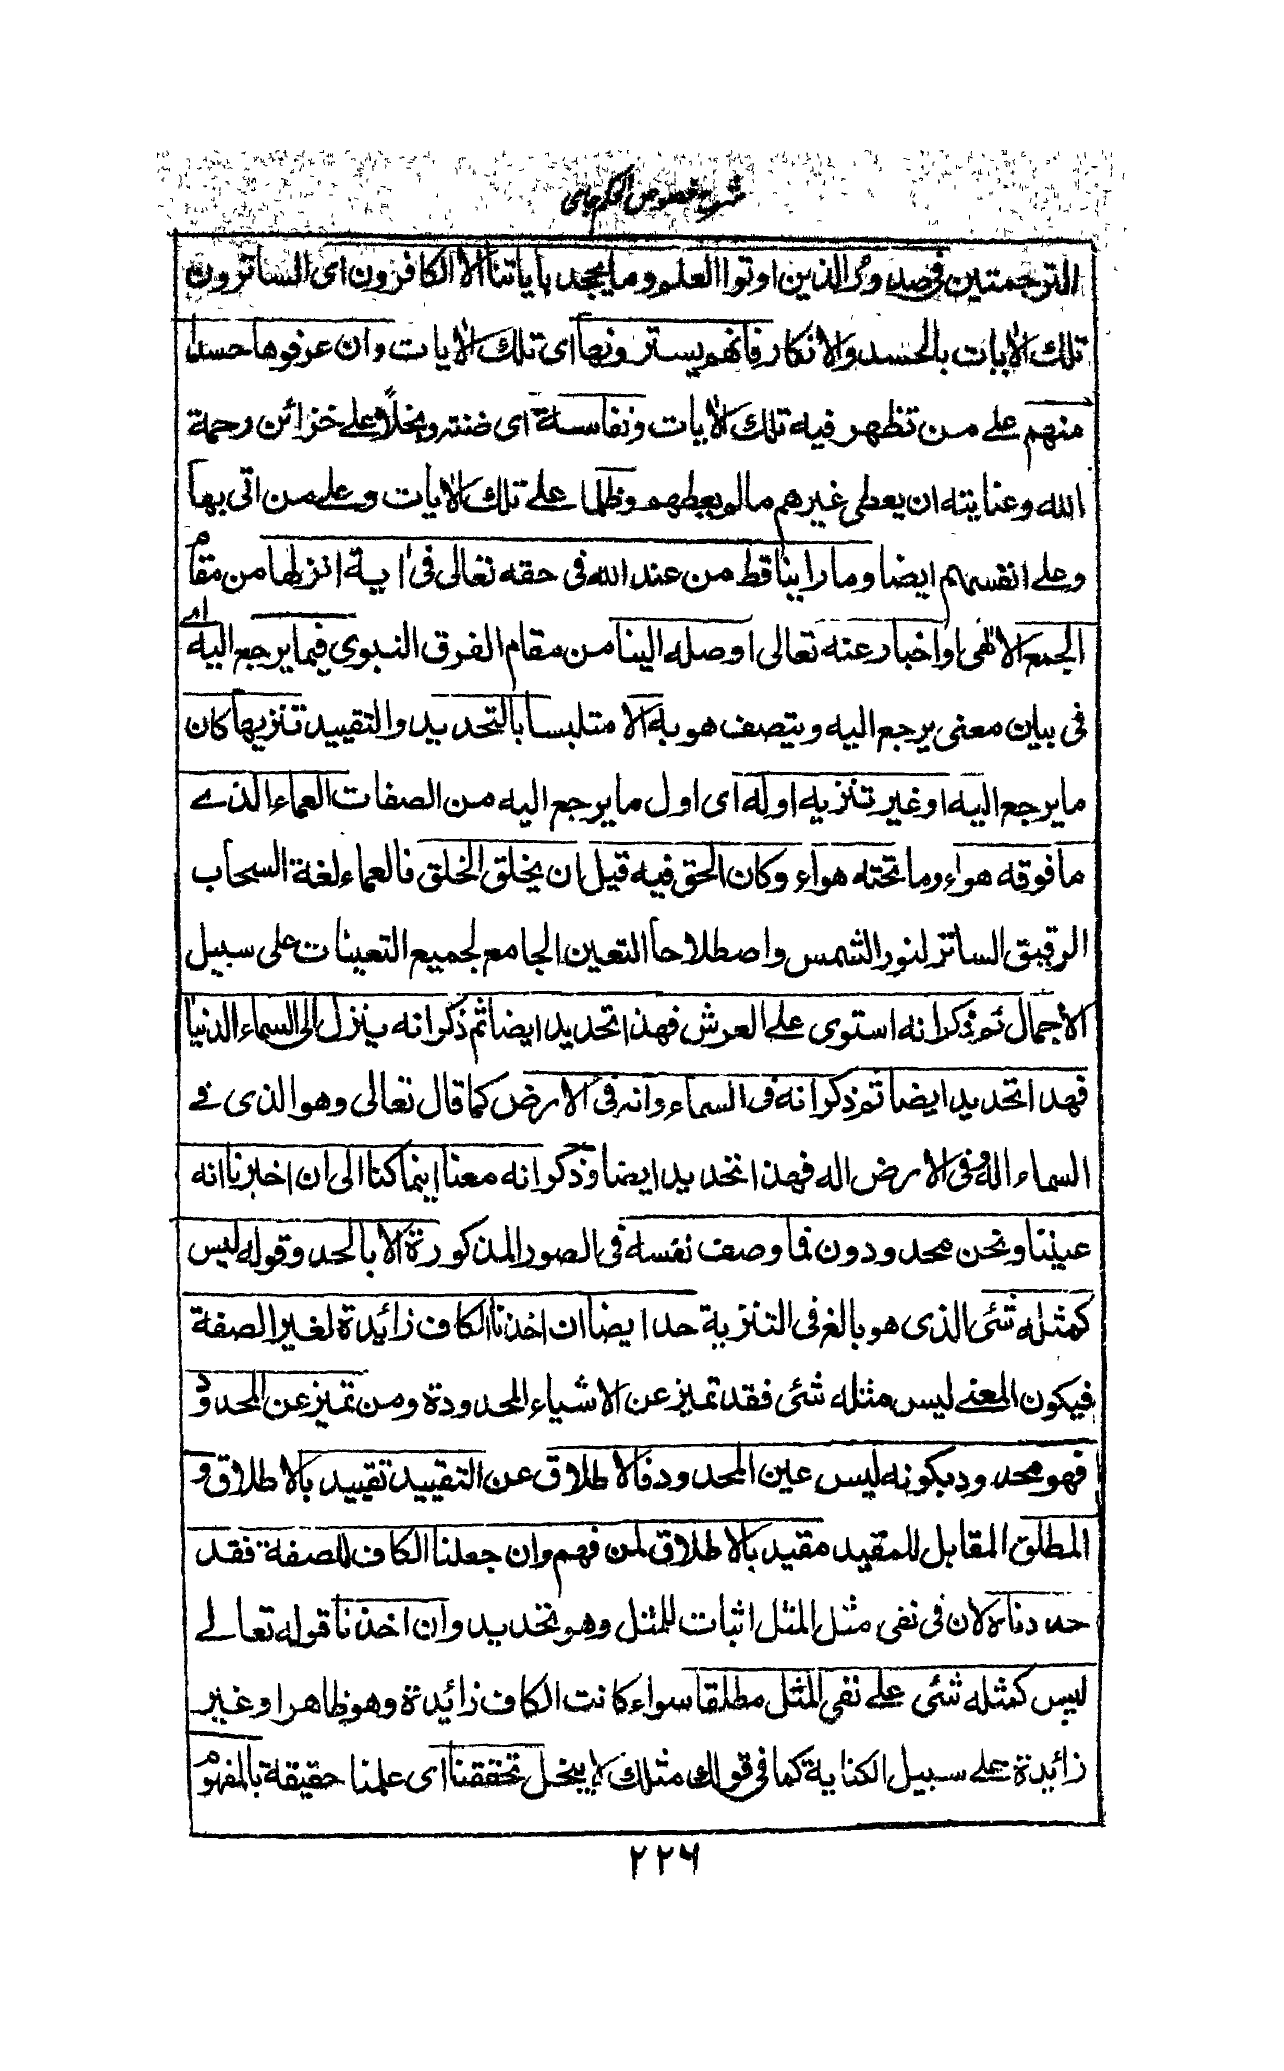 شرح فصوص الحكم جامي
الترجمتين في صدور الذين اوتوا العلم وما يجحد بآياتنا الا الكافرون اى الساترون
تلك الآيات بالحسد والانكار فانهم يسترونها اى تلك الآيات وان عرفوها حسدا
منهم على من تظهر فيه تلك الآيات ونفاسة اى ضنته وبخلاً على خزائن رحمة
الله وعنايته ان يعطى غيرهم ما لم يعطهم وظلما على تلك الآيات وعلى من اتى بها
وعلى انفسهم ايضا وما راينا قط من عند الله فى حقه تعالى فى اية انزلها من مقام
الجمع الالٰهى او اخبار عنه تعالى اوصله الينا من مقام الفرق النبوي فيما يرجع اليه اے
فى بيان معنى يرجع اليه ويتصف هو به الا متلبسا بالتحديد والتقييد تنزيها كان
ما يرجع اليه او غير تنزيه اوله اى اول ما يرجع اليه من الصفات العماء الذے
ما فوقه هواء وما تحته هواء وكان الحق فيه قبل ان يخلق الخلق فالعماء لغة السحاب
الرقيق الساتر لنور الشمس واصطلاحا التعين الجامع لجميع التعينات على سبيل
الاجمال ثم ذكر انه استوى على العرش فهذا تحديد ايضا ثم ذكر انه ينزل الى السماء الدنيا
فهذا تحديد ايضا ثم ذكر انه فى السماء وانه فى الارض كما قال تعالى وهو الذى في
السماء اله وفى الارض اله فهذا تحديد ايضا وذكر انه معنا اينما كنا الى ان اخبرنا انه
عيننا ونحن محدودون فما وصف نفسه فى الصور المذكورة الا بالحد وقوله ليس
كمثله شئى الذى هو بالغ فى التنزيه حد ايضا ان اخذنا الكاف زائيدة لغير الصفة
فيكون المعنے ليس مثله شئى فقد تميز عن الاشياء المحدودة ومن تميز عن المحدود
فهو محدود بكونه ليس عين المحدود فالاطلاق عن التقييد تقييد بالاطلاق و
المطلق المقابل للمقيد مقيد بالاطلاق لمن فهم وان جعلنا الكاف للصفة فقد
حددناه لان فى نفى مثل المثل اثبات للمثل وهو تحديد وان اخذنا قوله تعالے
ليس كمثله شئى على نفى المثل مطلقا سواء كانت الكاف زائيدة وهو ظاهر او غير
زائيدة على سبيل الكناية كما فى قولك مثلك لا يبخل تحققنا اى علمنا حقيقة بالمفهوم
٢٢٦